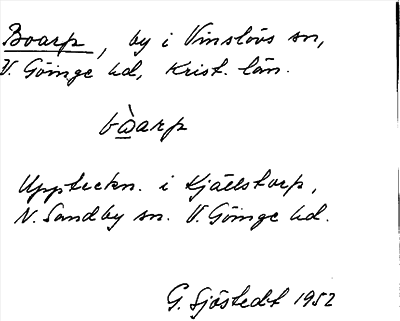 Boarp, by i Vinslövs sn,
V. Göinge hd, Krist. län.
bὼarp
Uppteckn. i Kjällstorp,
N. Sandby sn. V. Göinge hd.
G. Sjöstedt 1952